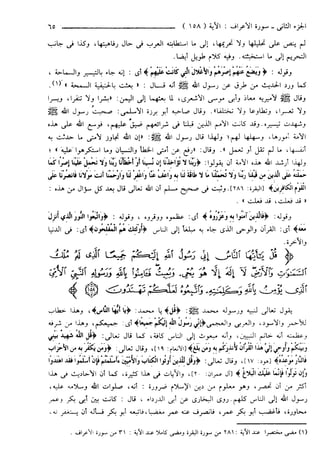 الجزء الثاني - سورة الأعراف : الآية ( ١٥٨ ) ٦٥
لم ينص على تحليلها ولا تحريمها، إلى ما استطابته العرب في حال رفاهيتها، وكذا في جانب
التحريم إلى ما استخبثته. وفيه كلام طويل أيضا.
وقوله : ﴿ وَيَضَعُ عَنْهُمْ إِصْرَهُمْ وَالْأَغْلَالَ الَّتِي كَانَتْ عَلَيْهِمْ ﴾ أي : إنه جاء بالتيسير والسماحة ،
كما ورد الحديث من طرق عن رسول الله ﷺ أنه قال : « بعثت بالحنيفية السمحة » (١).
وقال ﷺ لأميريه معاذ وأبي موسى الأشعري، لما بعثهما إلى اليمن: «بشرا ولا تنفرا، ويسرا
ولا تعسرا، وتطاوعا ولا تختلفا». وقال صاحبه أبو برزة الأسلمي: صحبت رسول الله ﷺ
وشهدت تيسيره. وقد كانت الأمم الذين قبلنا في شرائعهم ضيق عليهم، فوسع الله على هذه
الأمة أمورها، وسهلها لهم؛ ولهذا قال رسول الله ﷺ: «إن الله تجاوز لأمتي ما حدثت به
أنفسها، ما لم تقل أو تعمل ». وقال: «رفع عن أمتي الخطأ والنسيان وما استكرهوا عليه» ؛
ولهذا أرشد الله هذه الأمة أن يقولوا: ﴿ رَبَّنَا لَا تُؤَاخِذْنَا إِن نَّسِينَا أَوْ أَخْطَأْنَا رَبَّنَا وَلَا تَحْمِلْ عَلَيْنَا إِصْرًا كَمَا
حَمَلْتَهُ عَلَى الَّذِينَ مِن قَبْلِنَا رَبَّنَا وَلَا تُحَمِّلْنَا مَا لَا طَاقَةَ لَنَا بِهِ وَاعْفُ عَنَّا وَاغْفِرْ لَنَا وَارْحَمْنَا أَنتَ مَوْلَانَا فَانصُرْنَا عَلَى
الْقَوْمِ الْكَافِرِينَ ﴾ [البقرة: ٢٨٦]. وثبت في صحيح مسلم أن الله تعالى قال بعد كل سؤال من هذه :
« قد فعلت، قد فعلت » .
وقوله: ﴿ فَالَّذِينَ آمَنُوا بِهِ وَعَزَّرُوهُ ﴾ أي: عظموه ووقروه ، وقوله : ﴿ وَاتَّبَعُوا النُّورَ الَّذِي أُنزِلَ
مَعَهُ ﴾ أي: القرآن والوحي الذي جاء به مبلغا إلى الناس ﴿ أُولَٰئِكَ هُمُ الْمُفْلِحُونَ ﴾ أي: في الدنيا
والآخرة.
﴿ قُلْ يَا أَيُّهَا النَّاسُ إِنِّي رَسُولُ اللَّهِ إِلَيْكُمْ جَمِيعًا الَّذِي لَهُ مُلْكُ
السَّمَاوَاتِ وَالْأَرْضِ لَا إِلَٰهَ إِلَّا هُوَ يُحْيِي وَيُمِيتُ فَآمِنُوا بِاللَّهِ وَرَسُولِهِ
النَّبِيِّ الْأُمِّيِّ الَّذِي يُؤْمِنُ بِاللَّهِ وَكَلِمَاتِهِ وَاتَّبِعُوهُ لَعَلَّكُمْ تَهْتَدُونَ ﴾
يقول تعالى لنبيه ورسوله محمد ﷺ: ﴿ قُلْ ﴾ يا محمد: ﴿ يَا أَيُّهَا النَّاسُ ﴾ ، وهذا خطاب
للأحمر والأسود، والعربي والعجمي ﴿ إِنِّي رَسُولُ اللَّهِ إِلَيْكُمْ جَمِيعًا ﴾ أي: جميعكم، وهذا من شرفه
وعظمته أنه خاتم النبيين، وأنه مبعوث إلى الناس كافة، كما قال تعالى: ﴿ قُلِ اللَّهُ شَهِيدٌ بَيْنِي
وَبَيْنَكُمْ وَأُوحِيَ إِلَيَّ هَٰذَا الْقُرْآنُ لِأُنذِرَكُم بِهِ وَمَن بَلَغَ ﴾ [الأنعام: ١٩]، وقال تعالى: ﴿ وَمَن يَكْفُرْ بِهِ مِنَ الْأَحْزَابِ
فَالنَّارُ مَوْعِدُهُ ﴾ [هود: ١٧]، وقال تعالى: ﴿ وَقُل لِّلَّذِينَ أُوتُوا الْكِتَابَ وَالْأُمِّيِّينَ أَأَسْلَمْتُمْ فَإِنْ أَسْلَمُوا فَقَدِ اهْتَدَوا
وَّإِن تَوَلَّوْا فَإِنَّمَا عَلَيْكَ الْبَلَاغُ ﴾ [آل عمران: ٢٠]، والآيات في هذا كثيرة، كما أن الأحاديث في هذا
أكثر من أن تحصر، وهو معلوم من دين الإسلام ضرورة : أنه، صلوات الله وسلامه عليه،
رسول الله إلى الناس كلهم. روى البخاري عن أبي الدرداء ، قال : كانت بين أبي بكر وعمر
محاورة، فأغضب أبو بكر عمر، فانصرف عنه عمر مغضبا، فاتبعه أبو بكر فسأله أن يستغفر له،
(١) مضى مختصرا عند الآية : ٢٨١ من سورة البقرة ومضى كاملا عند الآية : ٣١ من سورة الأعراف .